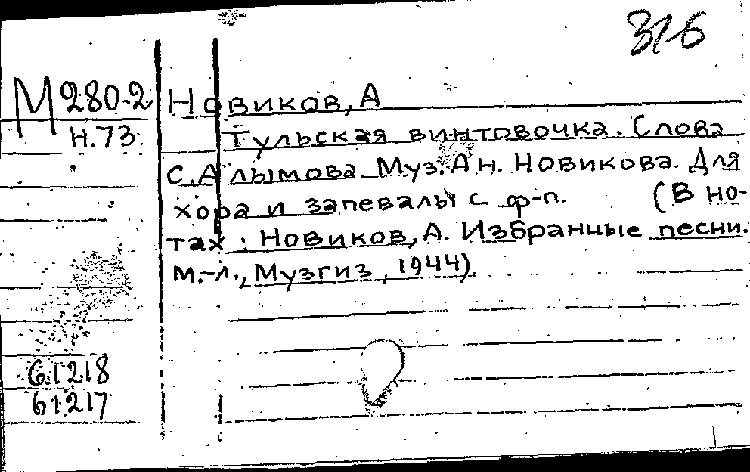 316
М280-2
Н.73
Новиков, А
Тульская винтовочка. Слова
С. Алымова Муз. Ан. Новикова. Для
хора и запевалы с ф-п. (В но-
тах: Новиков, А. Избранные песни.
М.-Л., Музгиз, 1944).
61218
61217